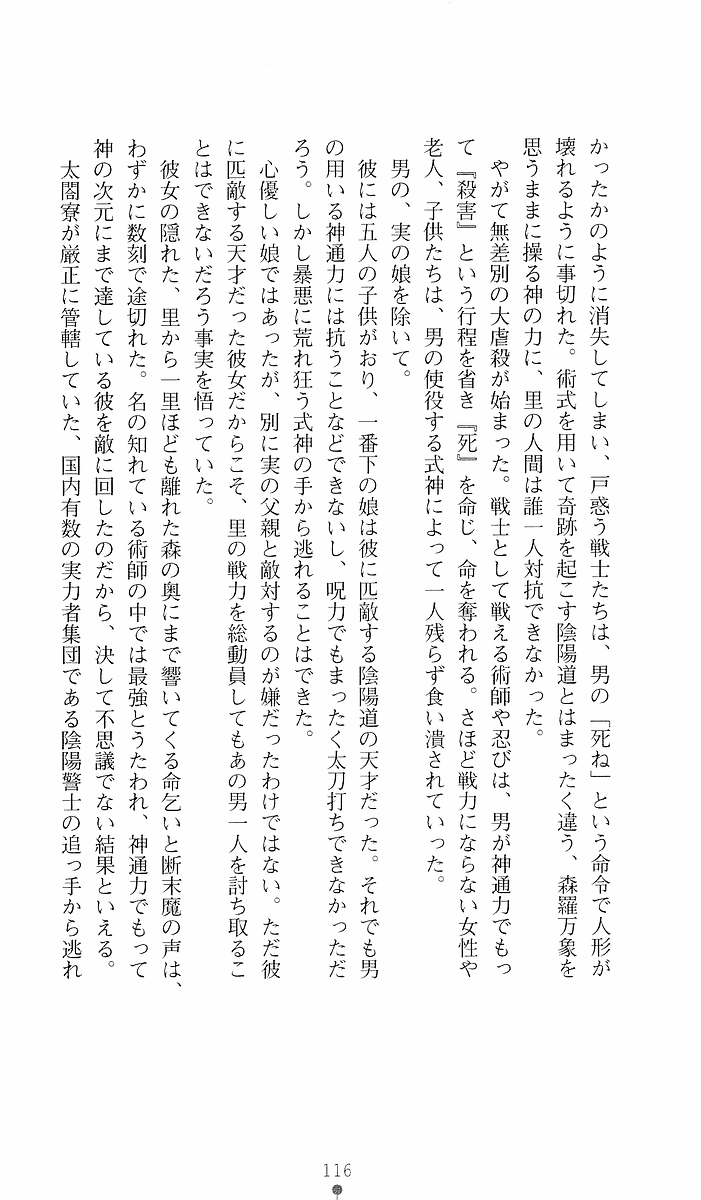 かったかのように消失してしまい、戸惑う戦士たちは、男の「死ね」という命令で人形が
壊れるように事切れた。術式を用いて奇跡を起こす陰陽道とはまったく違う、森羅万象を
思うままに操る神の力に、里の人間は誰一人対抗できなかった。
やがて無差別の大虐殺が始まった。戦士として戦える術師や忍びは、男が神通力でもっ
て『殺害』という行程を省き『死』を命じ、命を奪われる。さほど戦力にならない女性や
老人、子供たちは、男の使役する式神によって一人残らず食い潰されていった。
男の、実の娘を除いて。
彼には五人の子供がおり、一番下の娘は彼に匹敵する陰陽道の天才だった。それでも男
の用いる神通力には抗うことなどできないし、呪力でもまったく太刀打ちできなかっただ
ろう。しかし暴悪に荒れ狂う式神の手から逃れることはできた。
心優しい娘ではあったが、別に実の父親と敵対するのが嫌だったわけではない。ただ彼
に匹敵する天才だった彼女だからこそ、里の戦力を総動員してもあの男一人を討ち取るこ
とはできないだろう事実を悟っていた。
彼女の隠れた、里から一里ほども離れた森の奥にまで響いてくる命乞いと断末魔の声は、
わずかに数刻で途切れた。名の知れている術師の中では最強とうたわれ、神通力でもって
神の次元にまで達している彼を敵に回したのだから、決して不思議でない結果といえる。
太閤寮が厳正に管轄していた、国内有数の実力者集団である陰陽警士の追っ手から逃れ
116